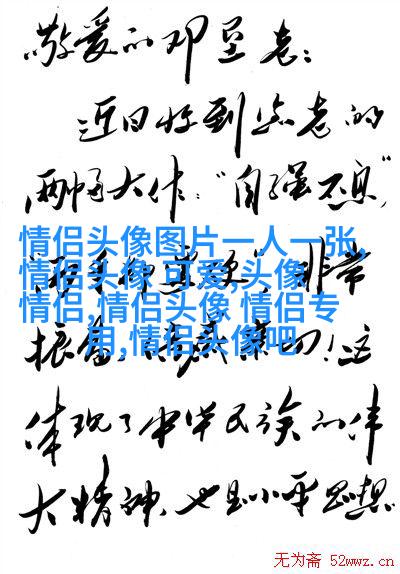 敬爱的邓垦老:
近日收到您老的
两幅大作:“自强不息”
情侣头像图片一人一张,
情侣头像 可爱,头像
情侣,情侣头像 情侣专
用,情侣头像吧
非常
振奋
!这
体现了中华民族的伟
大精神,也是小平思想
无为斋 52wwz.cn